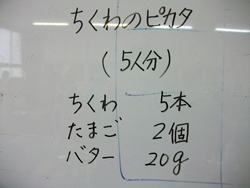 ちくわのピカタ
(5人分)
ちくわ 5本
たまご 2個
バター 20g